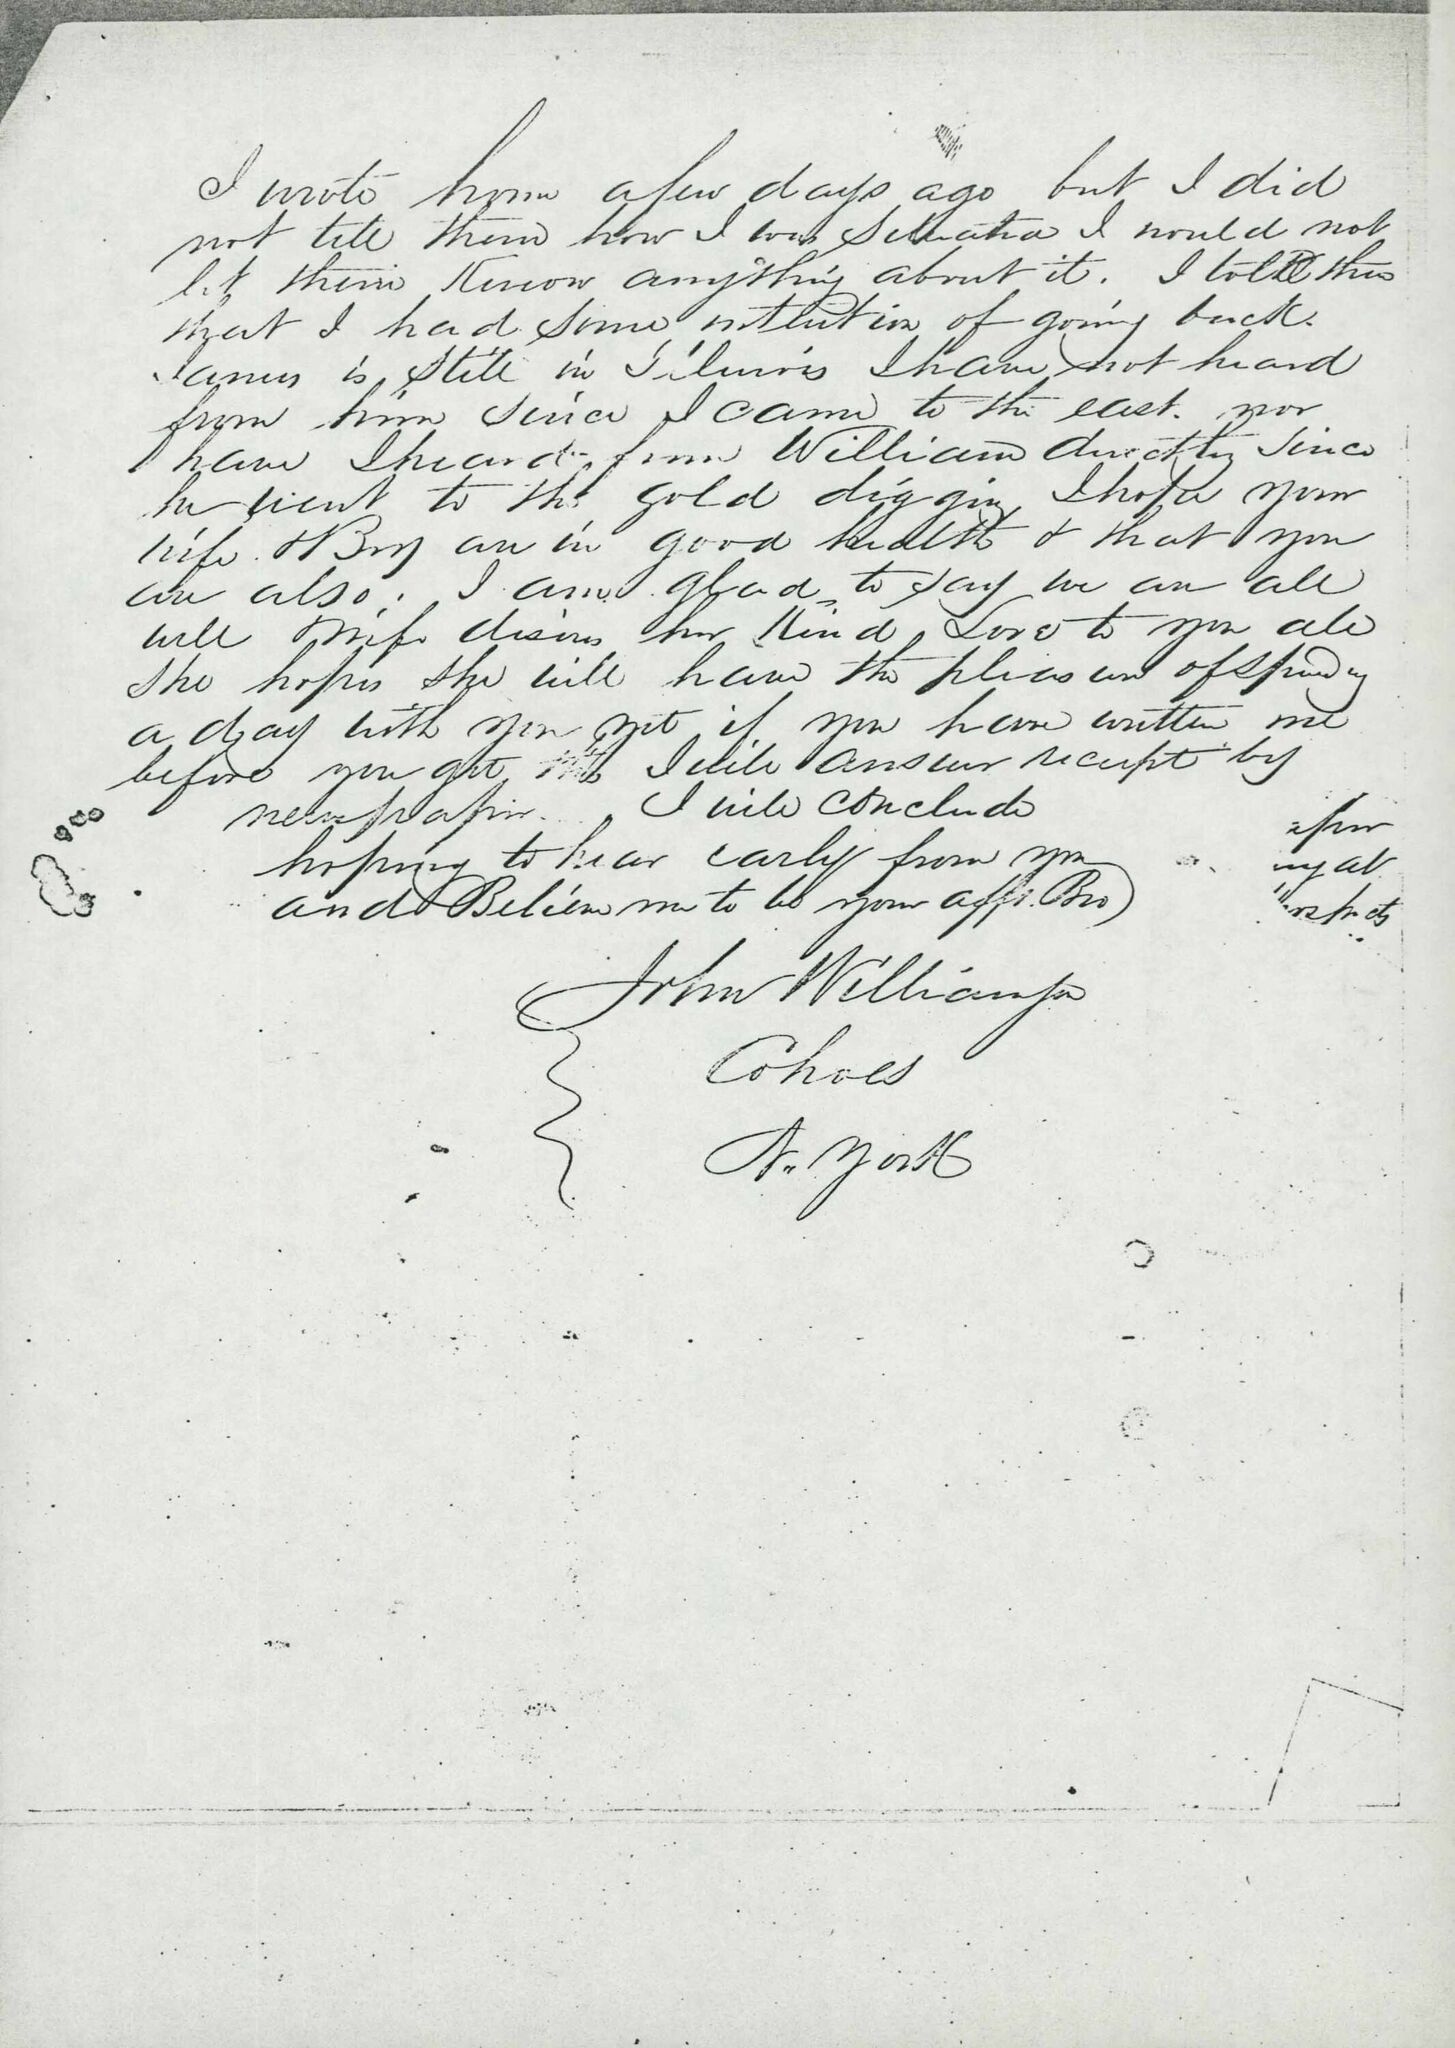 I wrote home a few days ago but I did
not tell them how I was Situated I would not
let them Know anything about it. I told them
that I had Some intention of going back.
James is Still in Illinois I have not heard
from him Since I came to the east. nor
have I heard from William directly Since
he went to the gold diggin I hope your
wife & Boy are in good health & that you
are also. I am glad to say we are all
well Wife desires her Kind Love to you all
She hopes she will have the pleasure of Spending
a day with you yet if you have written me
before you get this I will answer receipt by
newspaper. I will conclude
hoping to hear early from you
and Believe me to be your afft. Bro
John Williamson
Cohoes
N. York